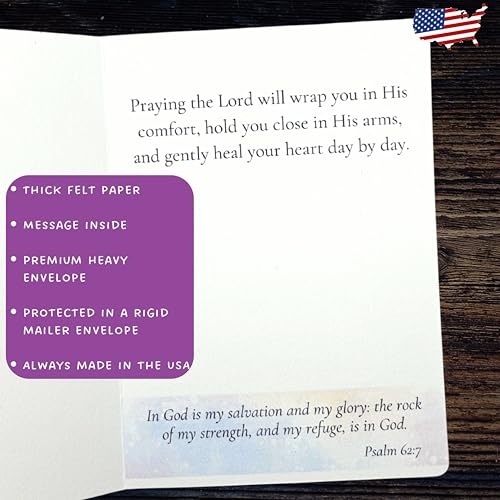 Praying the Lord will wrap you in His
comfort, hold you close in His arms,
and gently heal your heart day by day.
• THICK FELT PAPER
• MESSAGE INSIDE
• PREMIUM HEAVY
ENVELOPE
• PROTECTED IN A RIGID
MAILER ENVELOPE
• ALWAYS MADE IN THE USA
In God is my salvation and my glory: the rock
of my strength, and my refuge, is in God.
Psalm 62:7